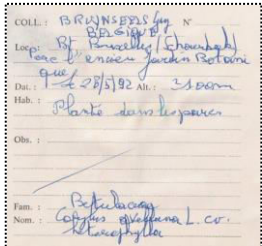 COLL. : BRUYNSEELS Guy N°
BELGIQUE
Loc. : Bt Bruxelles (Schaerbeek)
Parc l'ancien Jardin Botani
que
Dat. : 28/5/92 Alt. : 3100m
Hab. :
Plante dans les parcs
Obs. :
Fam. : Betulaceae
Nom. : Corylus avellana L. cv.
heterophylla